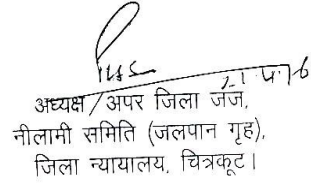 अध्यक्ष / अपर जिला जज,
नीलामी समिति (जलपान गृह),
जिला न्यायालय, चित्रकूट।